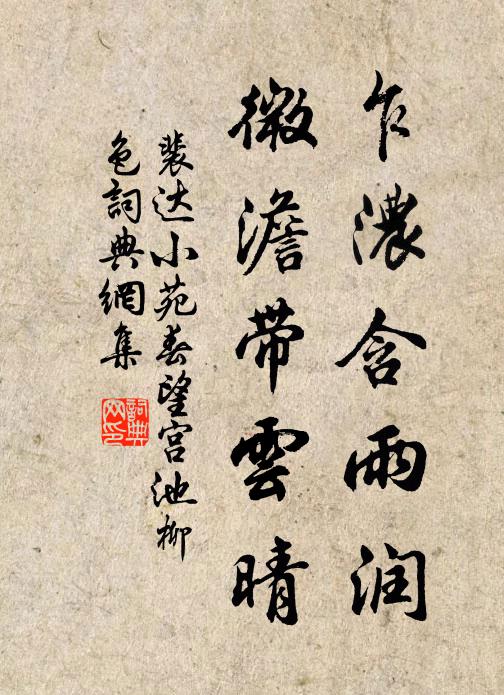 乍濃含雨润
微澹带雲晴
裴达小苑春望宫池柳
色詞典網集
詞典
网印